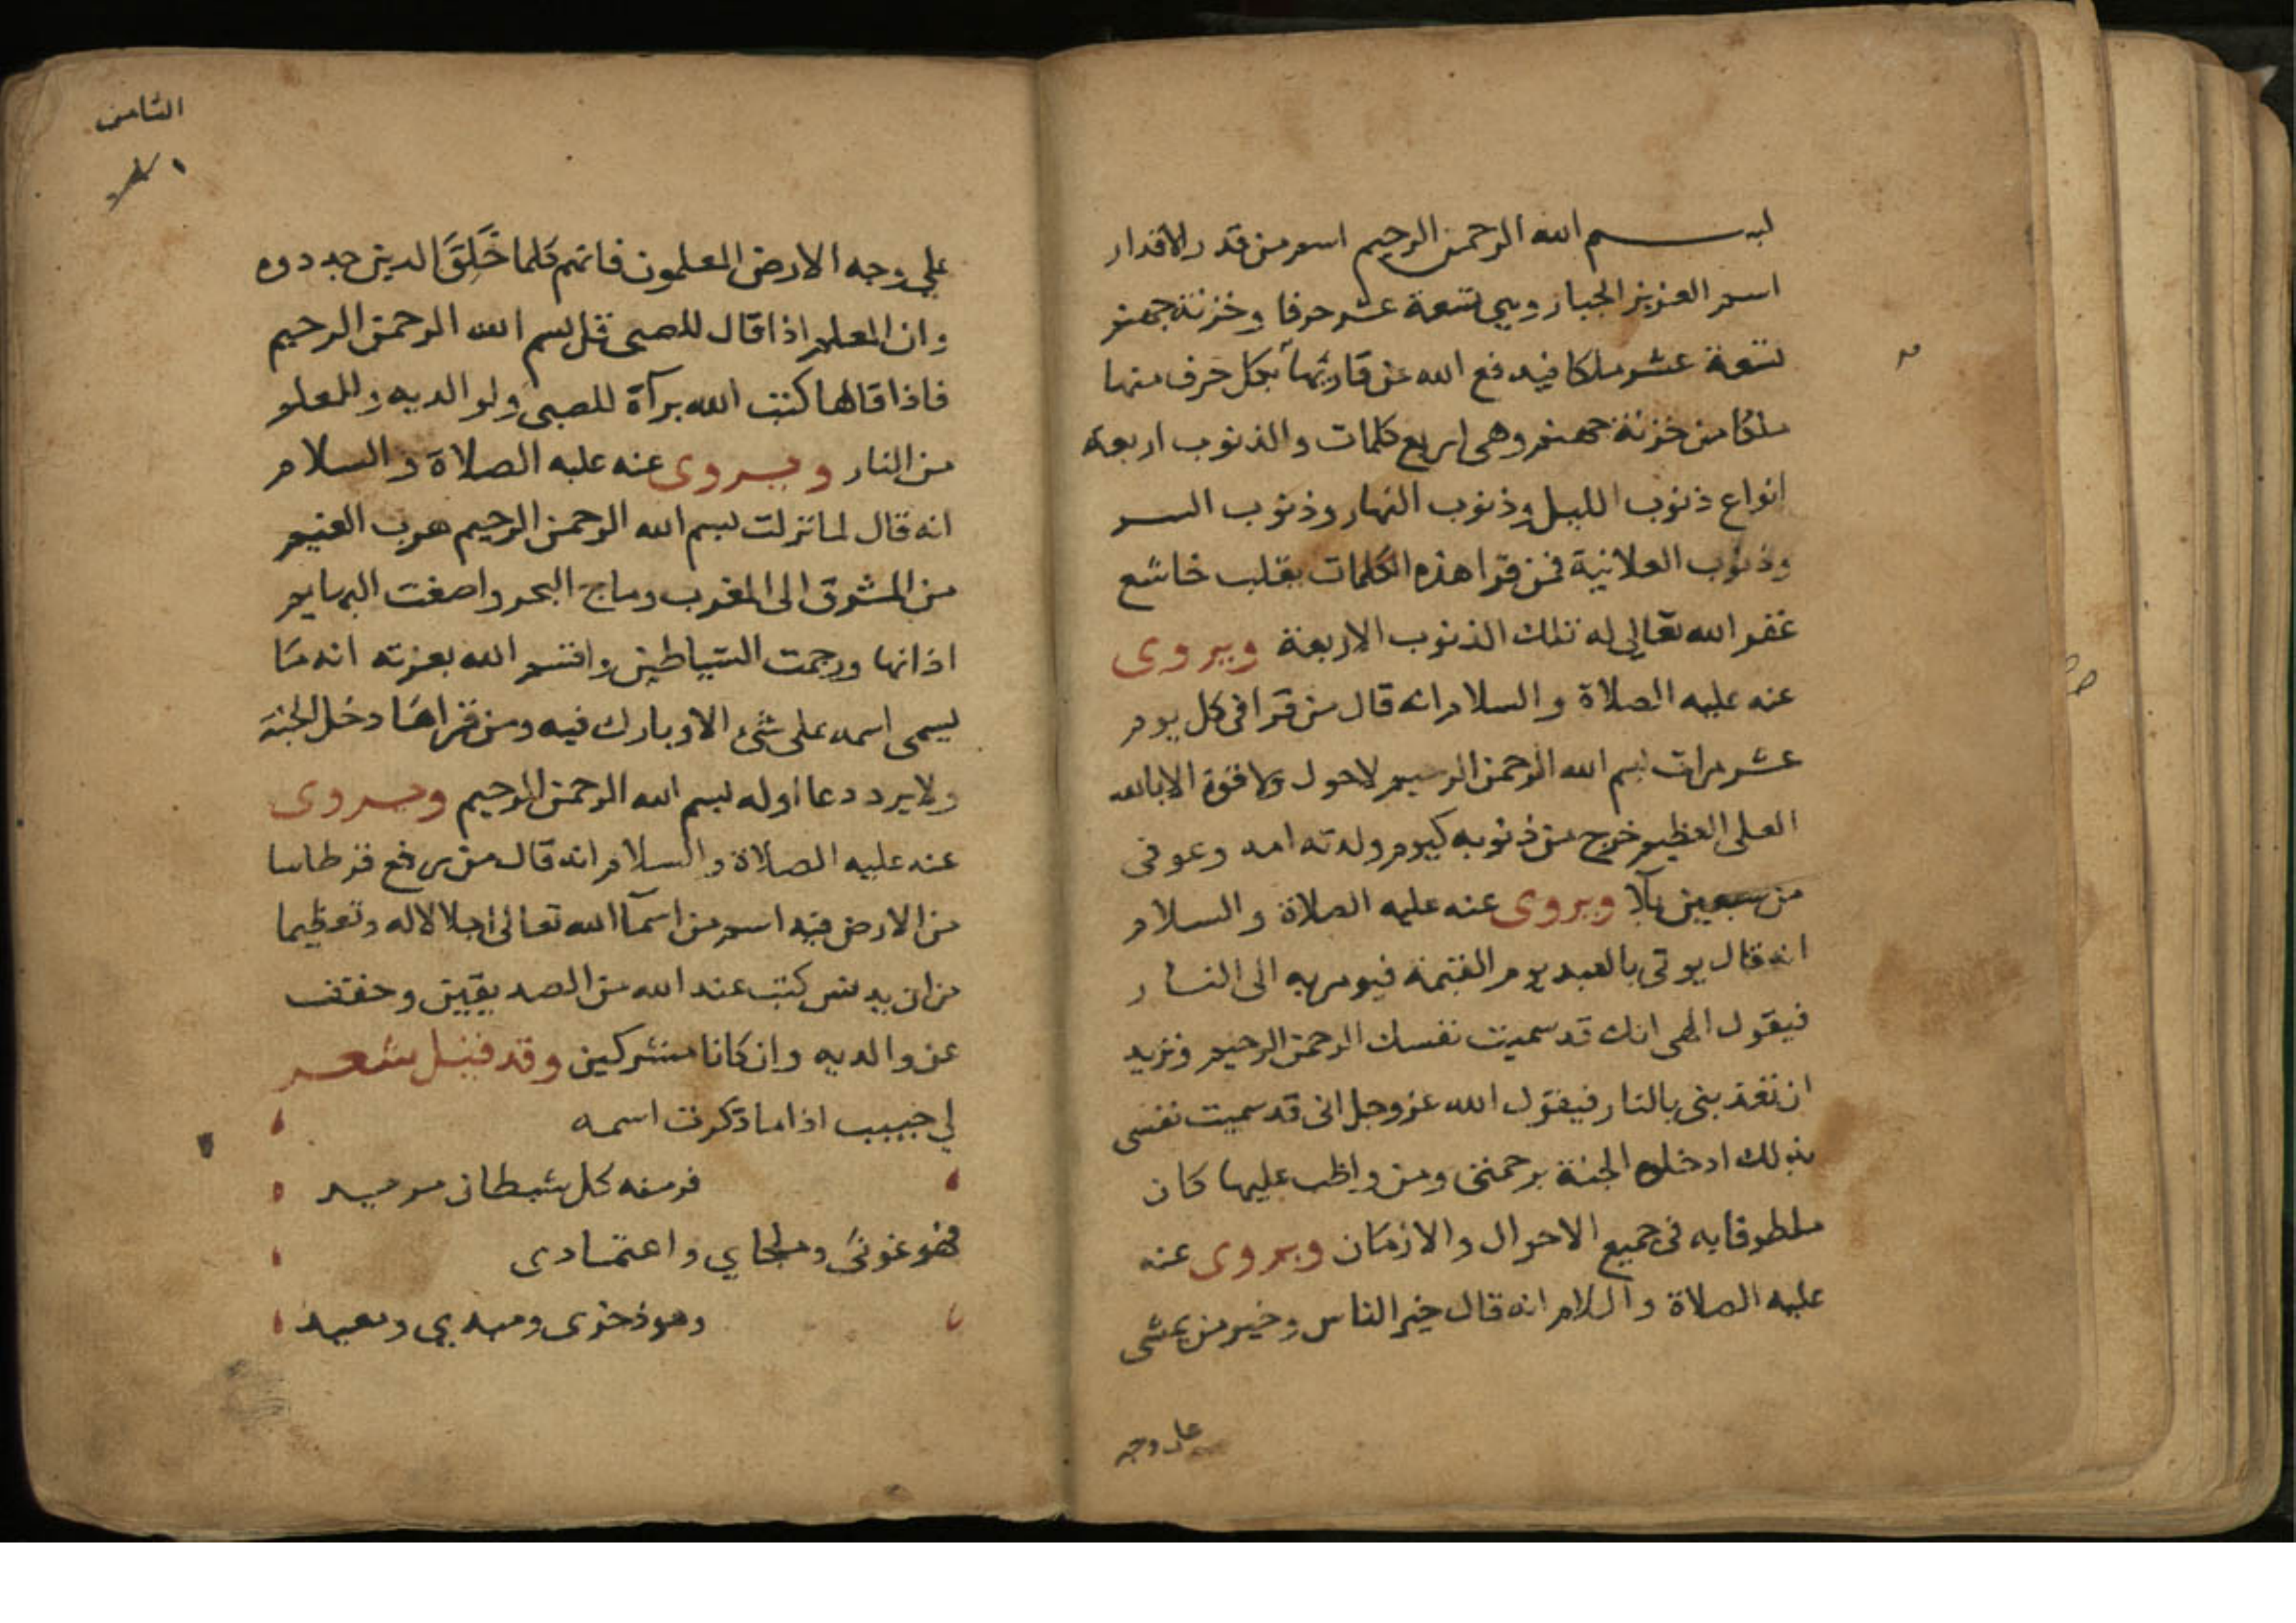 بسم الله الرحمن الرحيم اسم من قدر الاقدار
اسم العزيز الجبار وهي تسعة عشر حرفا وخزنة جهنم
تسعة عشر ملكا فيدفع الله عن قاريها بكل حرف منها
ملكا من خزنة جهنم وهى اربع كلمات والذنوب اربعة
انواع ذنوب الليل وذنوب النهار وذنوب السر
وذنوب العلانية فمن قرا هذه الكلمات بقلب خاشع
غفر الله تعالى له تلك الذنوب الاربعة ويروى
عنه عليه الصلاة والسلام انه قال من قرا فى كل يوم
عشر مرات بسم الله الرحمن الرحيم لاحول ولا قوة الا بالله
العلى العظيم خرج من ذنوبه كيوم ولدته امه وعوفى
من سبعين بلآ ويروى عنه عليه الصلاة والسلام
انه قال يوتى بالعبد يوم القيمة فيومر به الى النار
فيقول الهى انك قد سميت نفسك الرحمن الرحيم وتريد
ان تعذبنى بالنار فيقول الله عز وجل انى قد سميت نفسى
بذلك ادخلوه الجنة برحمتى ومن واظب عليها كان
ملطوفا به فى جميع الاحوال والازمان ويروى عنه
عليه الصلاة والسلام انه قال خير الناس وخير من يمشى
على وجه
الثامن
على وجه الارض المعلمون فانهم كلما خَلَقَ الدين جددوه
وان المعلم اذا قال للصبى قل بسم الله الرحمن الرحيم
فاذا قالها كتب الله برآة للصبى ولوالديه وللمعلم
من النار ويروى عنه عليه الصلاة والسلام
انه قال لما نزلت بسم الله الرحمن الرحيم هرب الغيم
من المشرق الى المغرب وماج البحر واصغت البهايم
اذانها ورجمت الشياطين واقسم الله بعزته انه ما
يسمى اسمه على شئ الا وبارك فيه ومن قراها دخل الجنة
ولا يرد دعا اوله بسم الله الرحمن الرحيم ويروى
عنه عليه الصلاة والسلام انه قال من رفع قرطاسا
من الارض فيه اسم من اسمآ الله تعالى اجلالا له وتعظيما
من ان يدنس كتب عند الله من الصديقين وخفف
عن والديه وان كانا مشركين وقد قيل شعر
لي حبيب اذا ما ذكرت اسمه
فر منه كل شيطان مريد
فهو غوثى وملجاي واعتمادى
وهو ذخرى ومبدي ومعيد